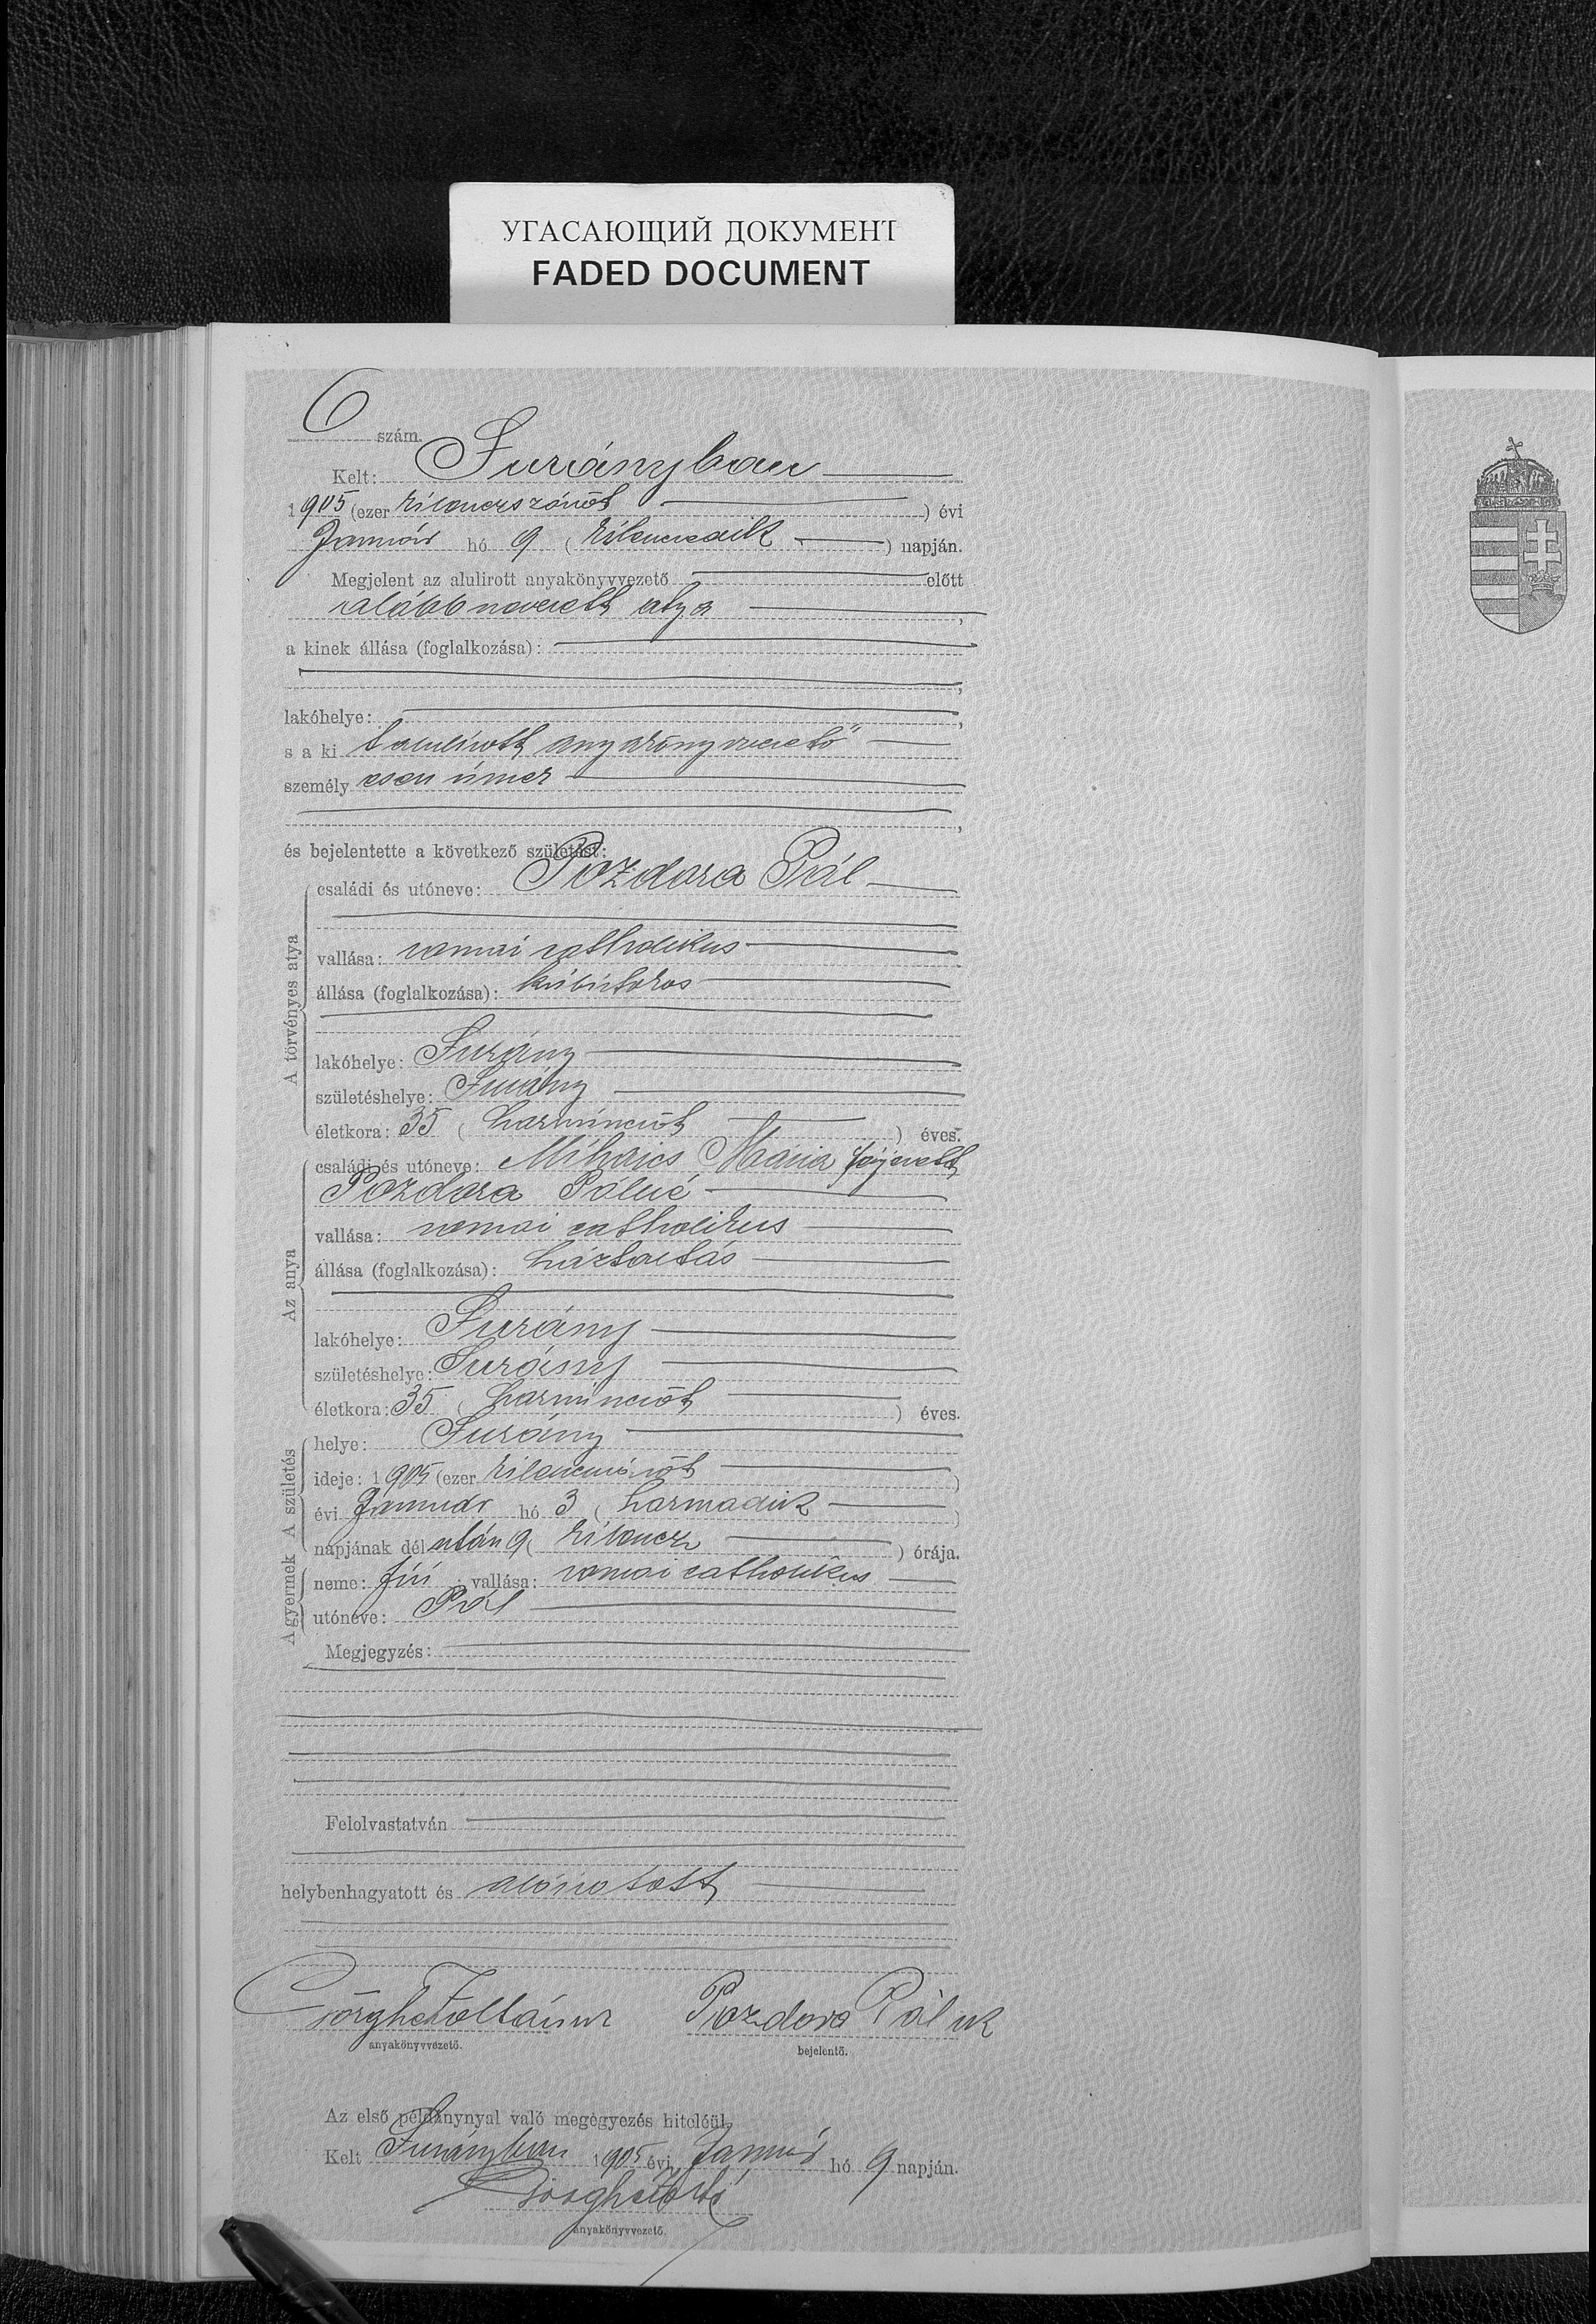 УГАСАЮЩИЙ ДОКУМЕНТ
FADED DOCUMENT
6 szám.
Kelt: Surányban
1905 (ezer kilenczszázöt) évi
Január hó 9 (kilenczedik) napján.
Megjelent az alulirott anyakönyvvezető előtt
alább nevezett atya,
a kinek állása (foglalkozása):
lakóhelye:
s a ki alulirott anyakönyvvezető
személyesen ismer
és bejelentette a következő születést:
A törvényes atya
családi és utóneve: Pozdora Pál
vallása: romai catholikus
állása (foglalkozása):
lakóhelye: Surány
születéshelye: Surány
életkora: 35 (harminczöt) éves.
Az anya
családi és utóneve: Mihaics Mária férjezett
Pozdora Pálné
vallása: romai catholikus
állása (foglalkozása): háztartás
lakóhelye: Surány
születéshelye: Surány
életkora: 35 (harminczöt) éves.
A születés
helye: Surány
ideje: 1905 (ezer kilenczszázöt)
évi Január hó 3 (harmadik)
napjának délután 9 (kilencz) órája.
A gyermek
neme: fiú; vallása: romai catholikus
utóneve: Pál
Megjegyzés:
Felolvastatván
helybenhagyatott és aláiratott
Pozdora Pál uk
anyakönyvvezető. bejelentő.
Az első példánynyal való megegyezés hiteléül,
Kelt Surányban 1905 évi Január hó 9 napján.
anyakönyvvezető.